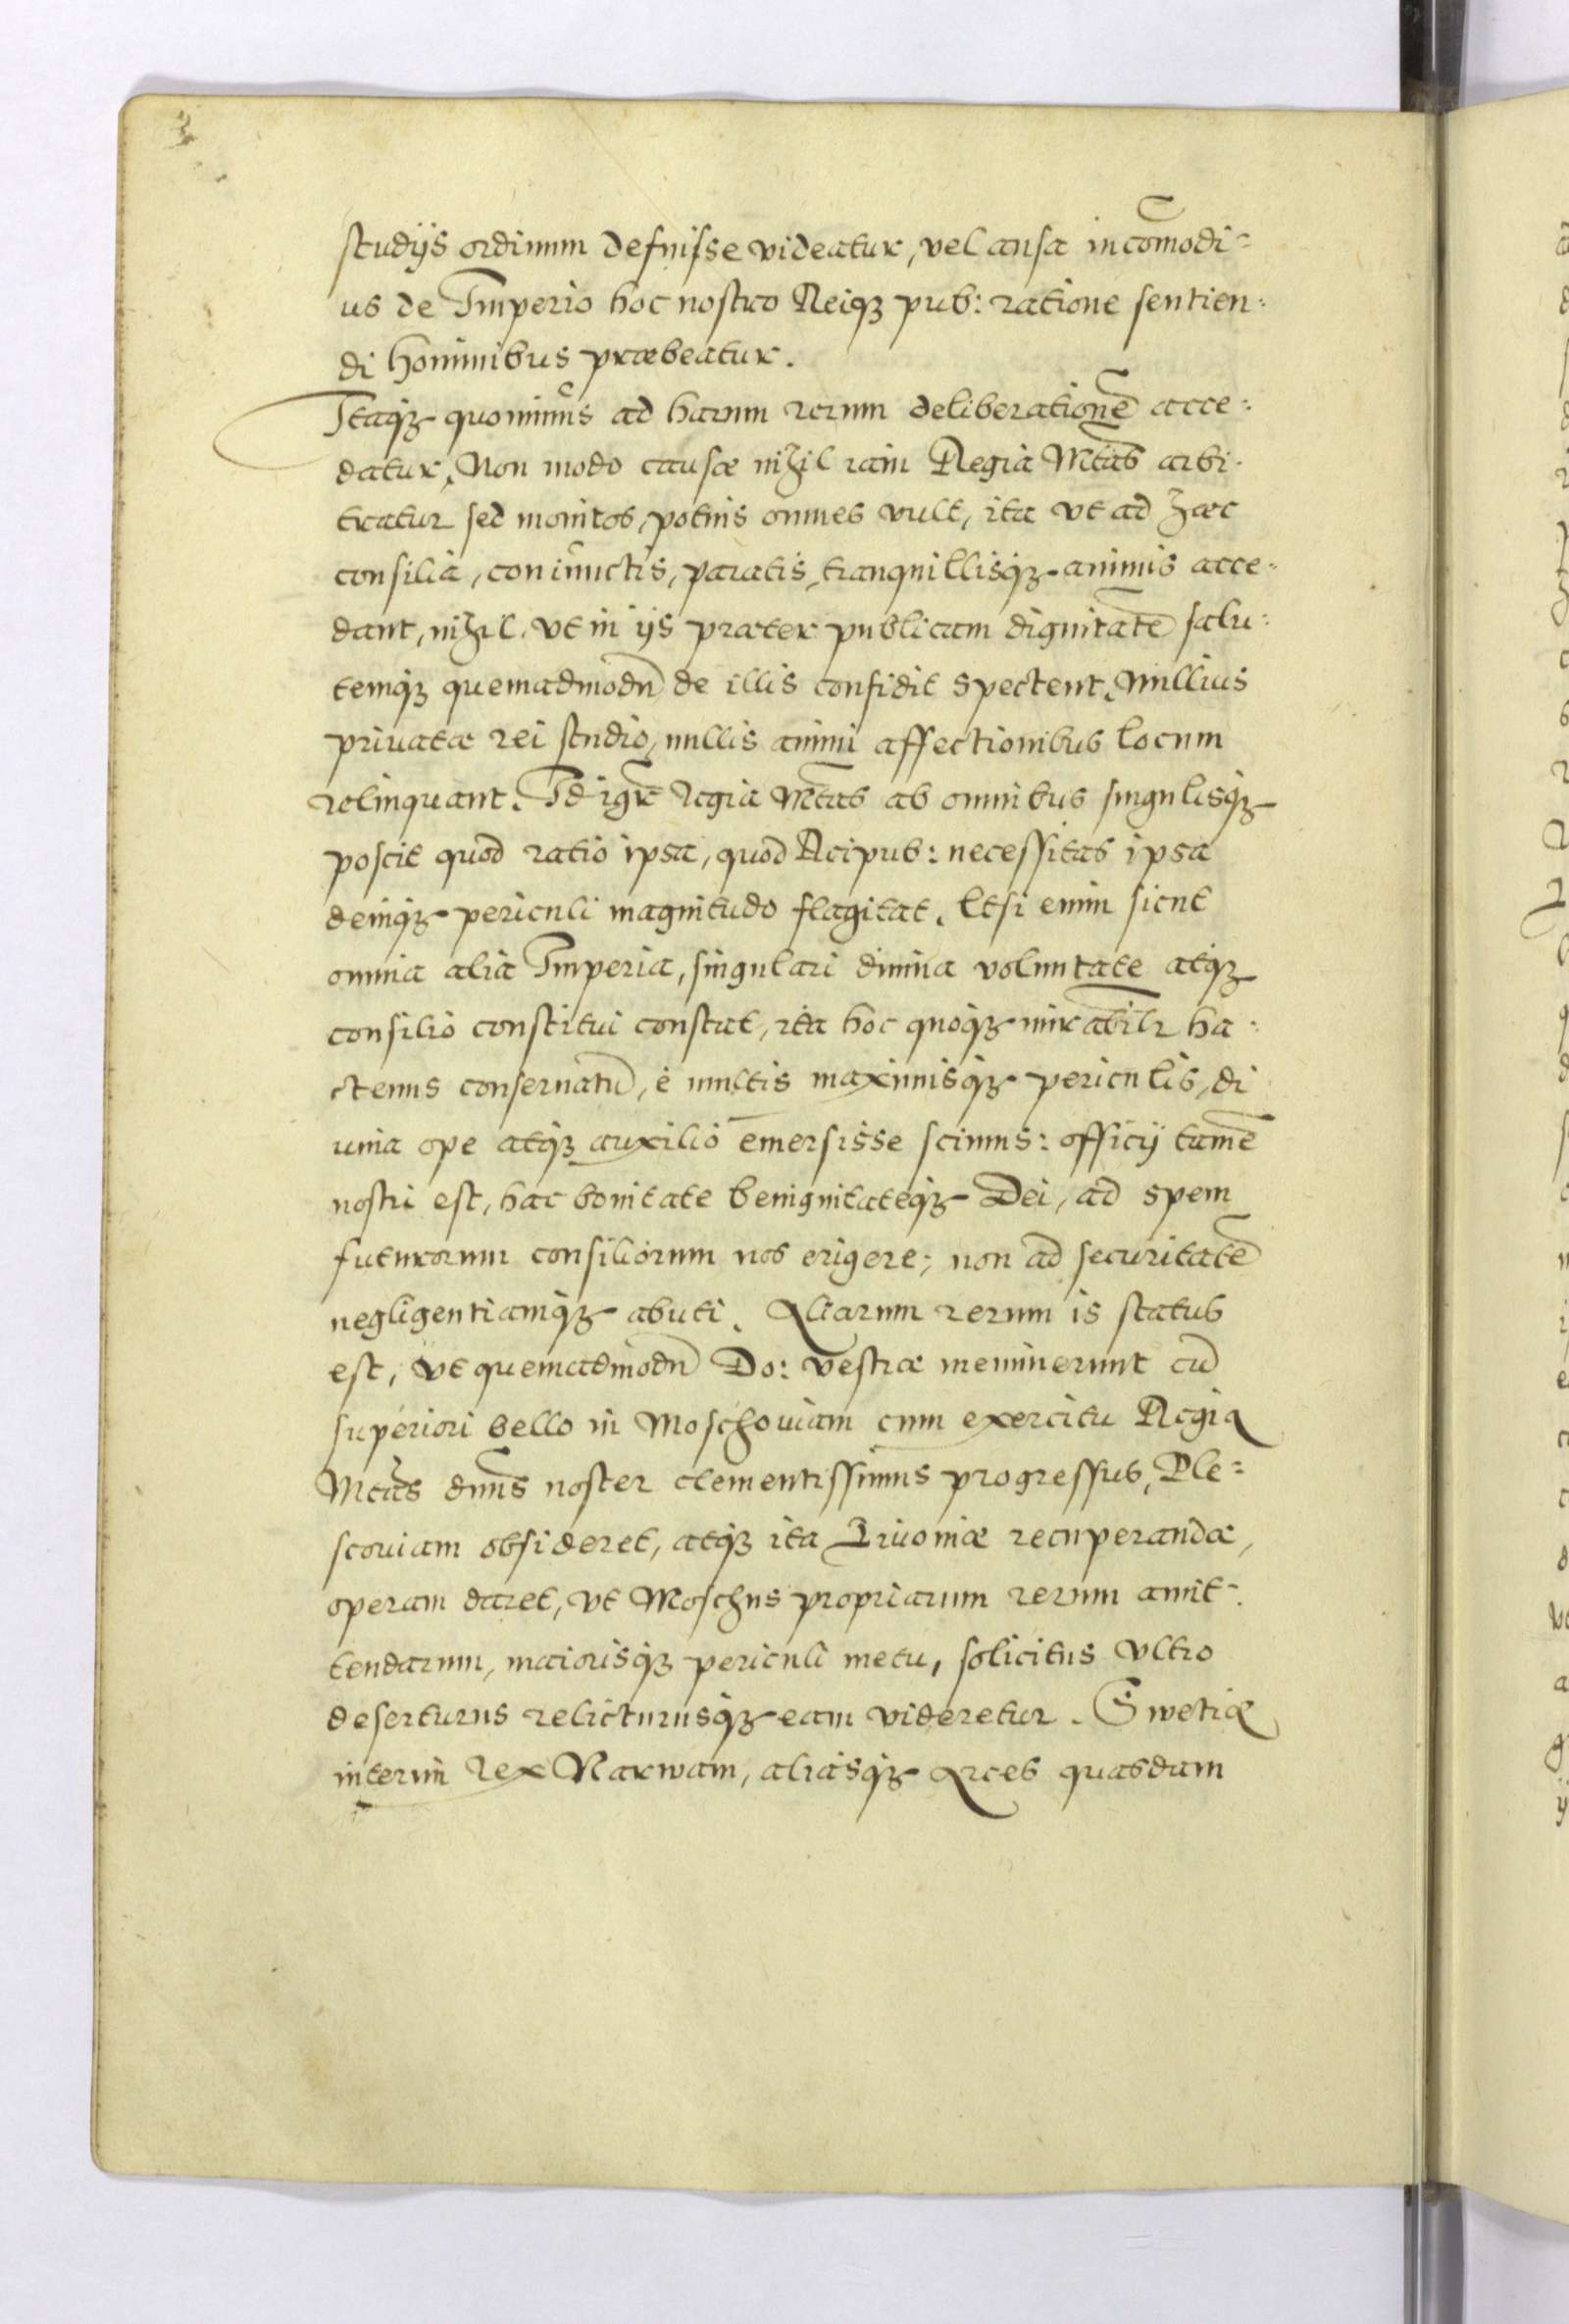 3
studijs ordinum defuisse videatur, vel ansa incom̃odi=
us de Imperio hoc nostro Reiqȝ pub: ratione sentien:
di hominibus præbeatur.
Itaqȝ quominus ad harum rerum deliberationẽ acce:
datur, Non modo causæ nihil iam Regia Mtas arbi:
tratur sed monitos, potius omnes vult, ita vt ad hæc
consilia, coniunctis, paratis, tranquillisqȝ animis acce:
dant, nihil vt in ijs præter publicam dignitatẽ salu:
temqȝ quemadmodũ de illis confidit spectent, Nullius
priuatæ rei studio, nullis animi affectionibus locum
relinquant. Id igr̃ Regia Mtas ab omnibus singulisqȝ
poscit quod ratio ipsa, quod Reipub: necessitas ipsa
deniqȝ periculi magnitudo flagitat. Etsi enim sicut
omnia alia Imperia, singulari diuina voluntate atqȝ
consilio constitui constat, ita hoc quoqȝ mirabilr ha:
ctenus conseruatũ, è multis maximisqȝ periculis, di
uina ope atqȝ auxilio emersisse scimus: officij tamẽ
nostri est, hac bonitate benignitateqȝ Dei, ad spem
futurorum consiliorum nos erigere; non ad securitatẽ
negligentiamqȝ abuti. Quarum rerum is status
est, vt quemadmodũ Do: vestræ meminerunt cũ
superiori bello in Moschouiam cum exercitu Regia
Mtas dñus noster clementissimus progressus, Ple=
scouiam obsideret, atqȝ ita Liuoniæ recuperandæ,
operam daret, vt Moschus propriarum rerum amit:
tendarum, maiorisqȝ periculi metu, solicitus vltro
deserturus relicturusqȝ eam videretur. Swetiæ
interim Rex Narwam, aliasqȝ Arces quasdam